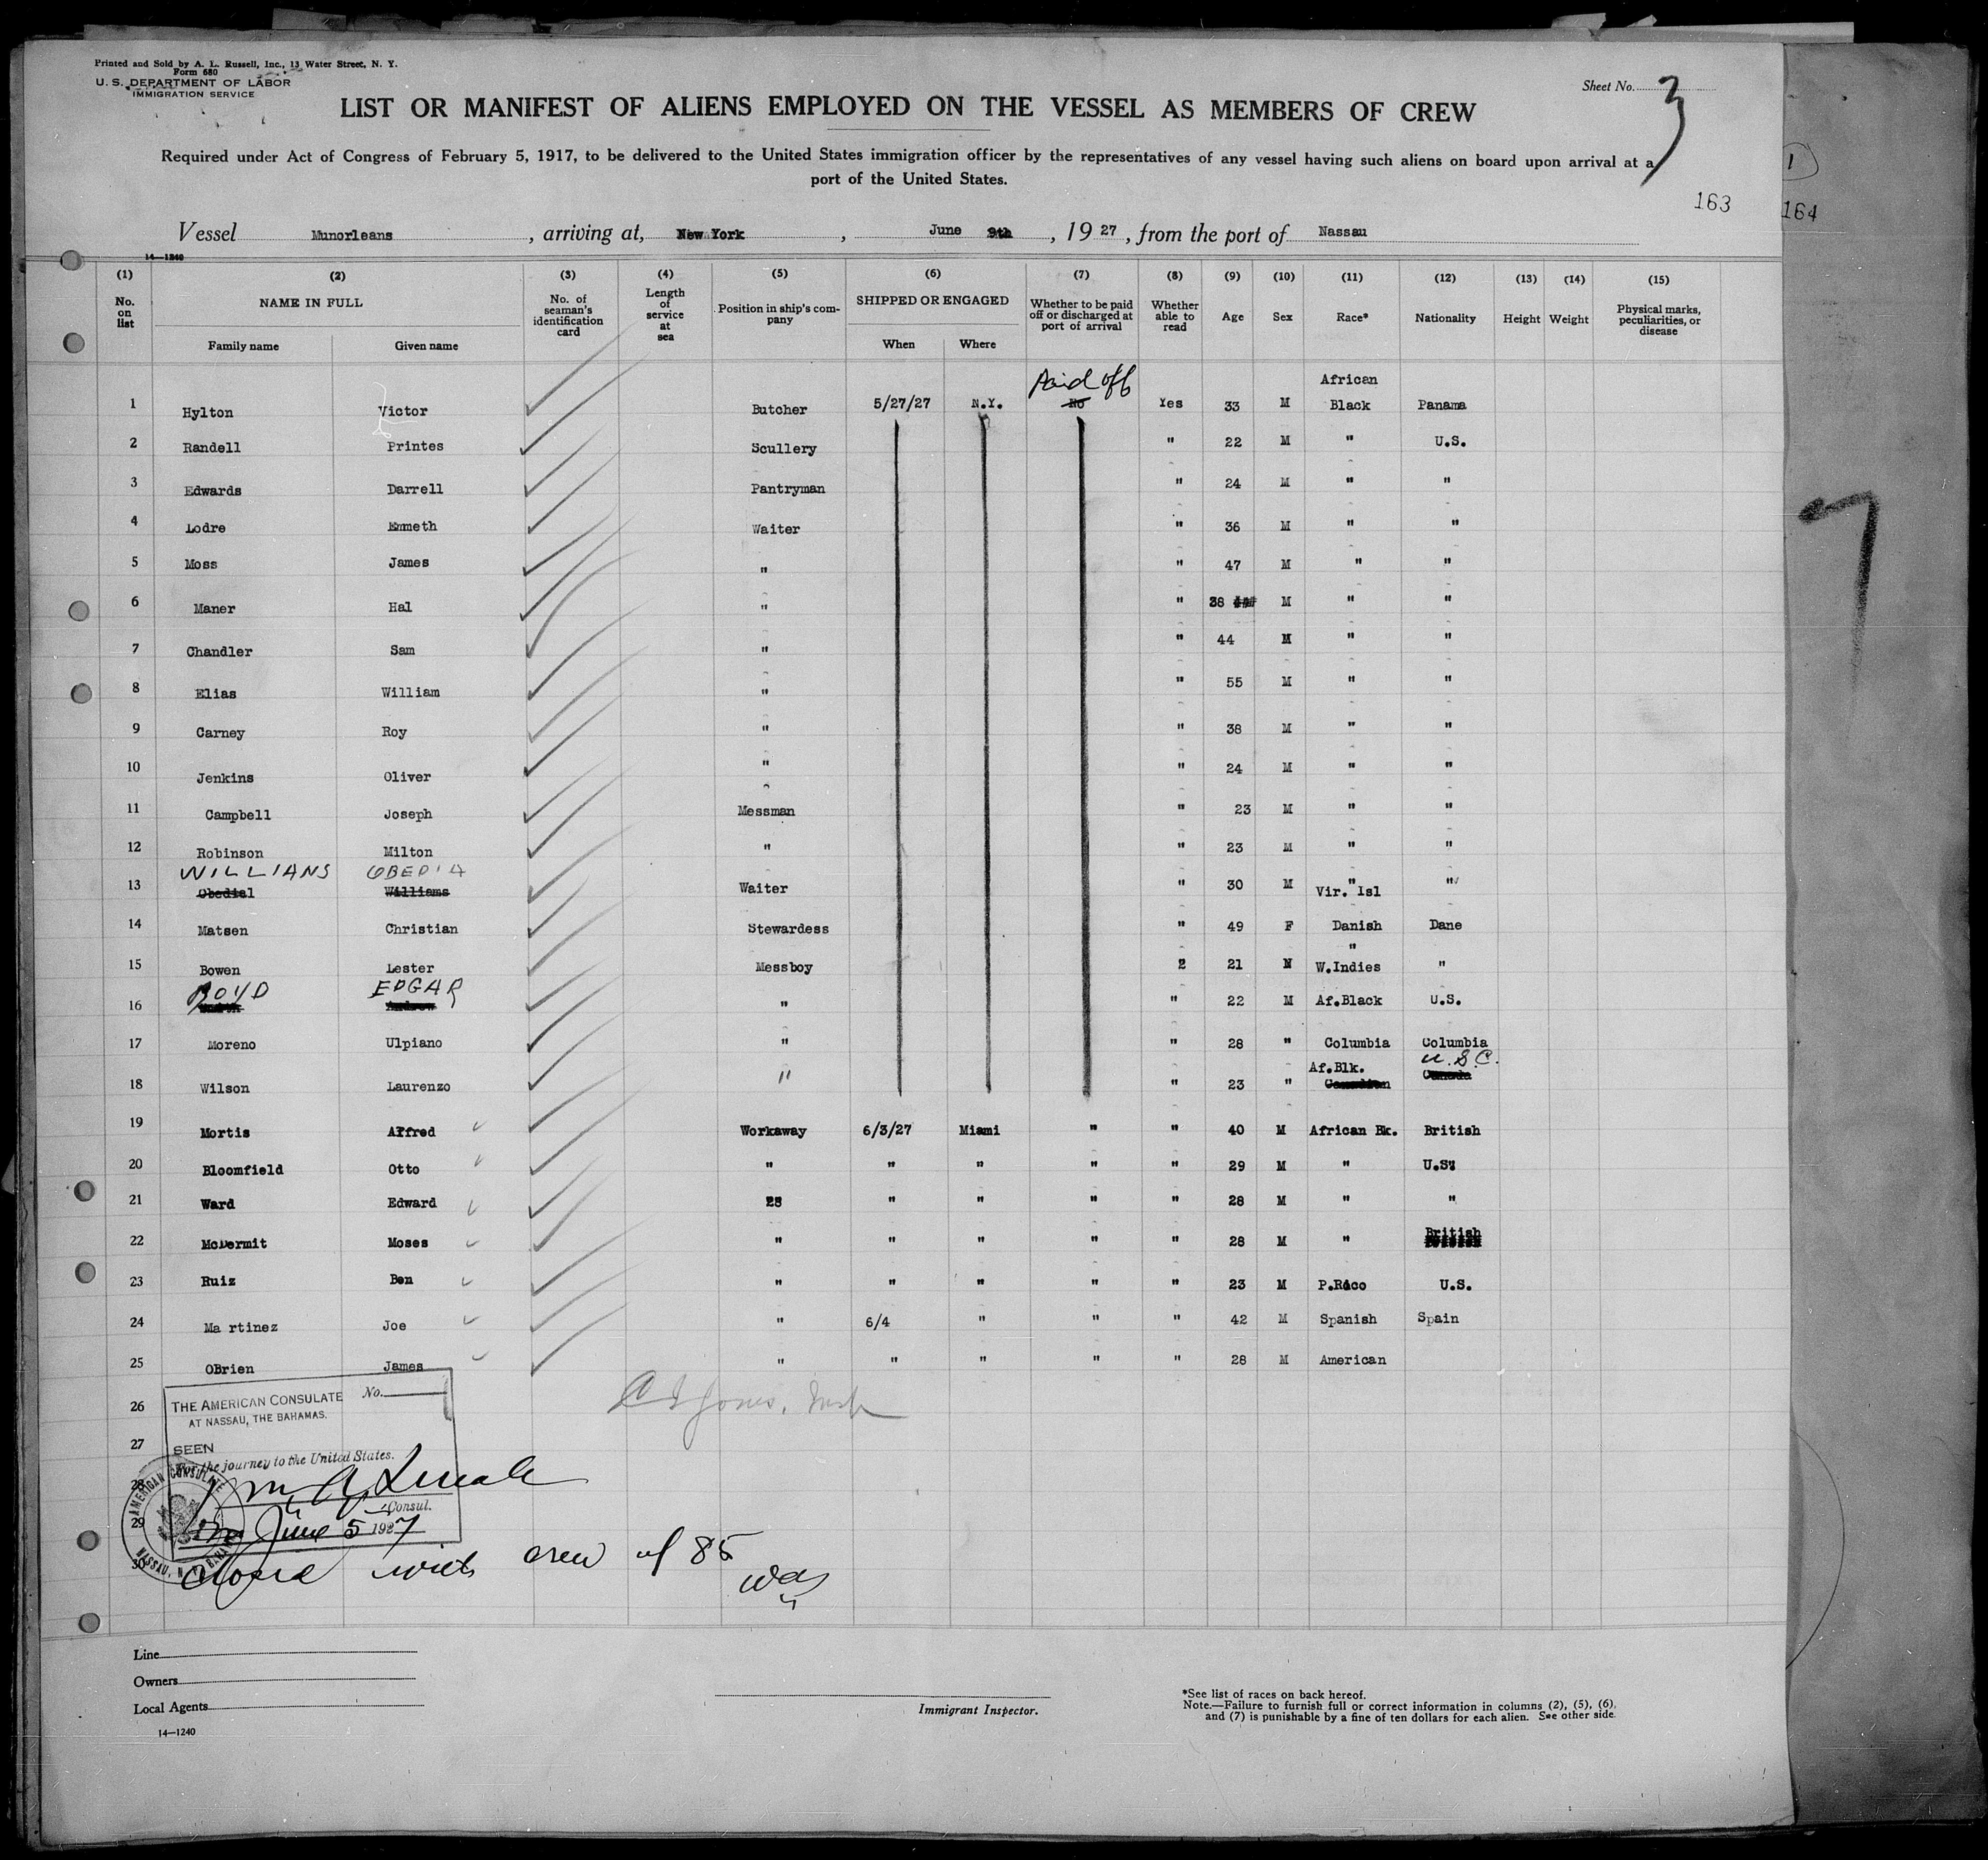 Printed and Sold by A. L. Russell, Inc., 13 Water Street, N. Y.
Form 680
U. S. DEPARTMENT OF LABOR
IMMIGRATION SERVICE
Sheet No. 3
LIST OR MANIFEST OF ALIENS EMPLOYED ON THE VESSEL AS MEMBERS OF CREW
Required under Act of Congress of February 5, 1917, to be delivered to the United States immigration officer by the representatives of any vessel having such aliens on board upon arrival at a
port of the United States.
163
1
164
Vessel Munorleans, arriving at, New York, June 9th, 1927, from the port of Nassau
14—1240
(1) (2) (3) (4) (5) (6) (7) (8) (9) (10) (11) (12) (13) (14) (15)
No. on list NAME IN FULL No. of seaman's identification card Length of service at sea Position in ship's company SHIPPED OR ENGAGED Whether to be paid off or discharged at port of arrival Whether able to read Age Sex Race* Nationality Height Weight Physical marks, peculiarities, or disease
Family name Given name When Where
Paid off African
1 Hylton Victor Butcher 5/27/27 N.Y. No Yes 33 M Black Panama
2 Randell Printes Scullery " 22 M " U.S.
3 Edwards Darrell Pantryman " 24 M " "
4 Lodre Emmeth Waiter " 36 M " "
5 Moss James " " 47 M " "
6 Maner Hal " " 38 M " "
7 Chandler Sam " " 44 M " "
8 Elias William " " 55 M " "
9 Carney Roy " " 38 M " "
10 Jenkins Oliver " " 24 M " "
11 Campbell Joseph Messman " 23 M " "
12 Robinson Milton " " 23 M " "
WILLIANS OBEDIA
13 Obedial Williams Waiter " 30 M " Vir. Isl "
14 Matsen Christian Stewardess " 49 F Danish Dane
15 Bowen Lester Messboy 2 21 N " W.Indies "
BOYD EDGAR
16 Andrew " " 22 M Af.Black U.S.
17 Moreno Ulpiano " " 28 " Columbia Columbia
Af.Blk. U.S.C.
18 Wilson Laurenzo " " 23 " Canadian Canada
19 Mortis Alfred Workaway 6/3/27 Miami " " 40 M African Bk. British
20 Bloomfield Otto " " " " " 29 M " U.S"
21 Ward Edward 28 " " " " 28 M " "
22 McDermit Moses " " " " " 28 M " British
23 Ruiz Ben " " " " " 23 M P.Rico U.S.
24 Ma rtinez Joe " 6/4 " " " 42 M Spanish Spain
25 OBrien James " " " " " 28 M American
26
27
28
29
30
THE AMERICAN CONSULATE No.
AT NASSAU, THE BAHAMAS.
SEEN
For the journey to the United States.
Consul.
June 5 1927
AMERICAN CONSULATE
NASSAU, N. P. BAHAMAS
Jones, Insp
Closed with crew of 85
Line
Owners
Local Agents
14—1240
Immigrant Inspector.
*See list of races on back hereof.
Note.—Failure to furnish full or correct information in columns (2), (5), (6),
and (7) is punishable by a fine of ten dollars for each alien. See other side.
7